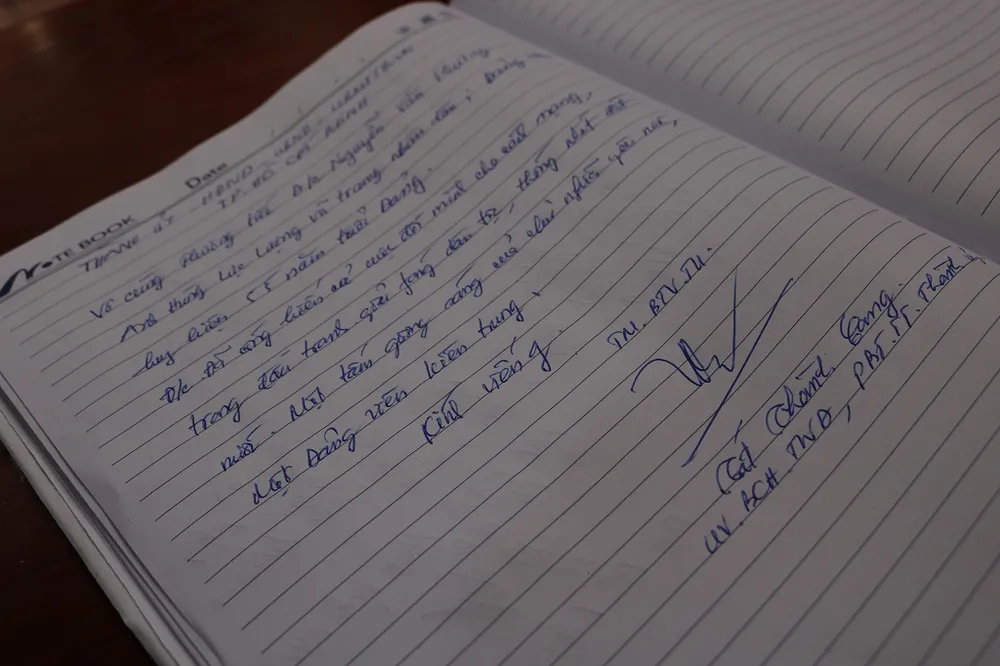 NOTE BOOK
Date
THÀNH ỦY HĐND UBND UBMTTQ
TP. HỒ CHÍ MINH
Vô cùng thương tiếc Đ/c Nguyễn Văn Thương
Anh hùng lực lượng vũ trang nhân dân, Đảng
huy hiệu 55 năm tuổi Đảng.
Đ/c đã cống hiến cả cuộc đời mình cho cách mạng,
trong đấu tranh giải phóng dân tộc, thống nhất đất
nước. Một tấm gương sáng của chủ nghĩa yêu nước,
Một Đảng viên kiên trung.
Kính viếng
TM. BTV.TU.
Tất Thành Cang.
UV. BCH. TWĐ, PBT. TT. Thành ủy